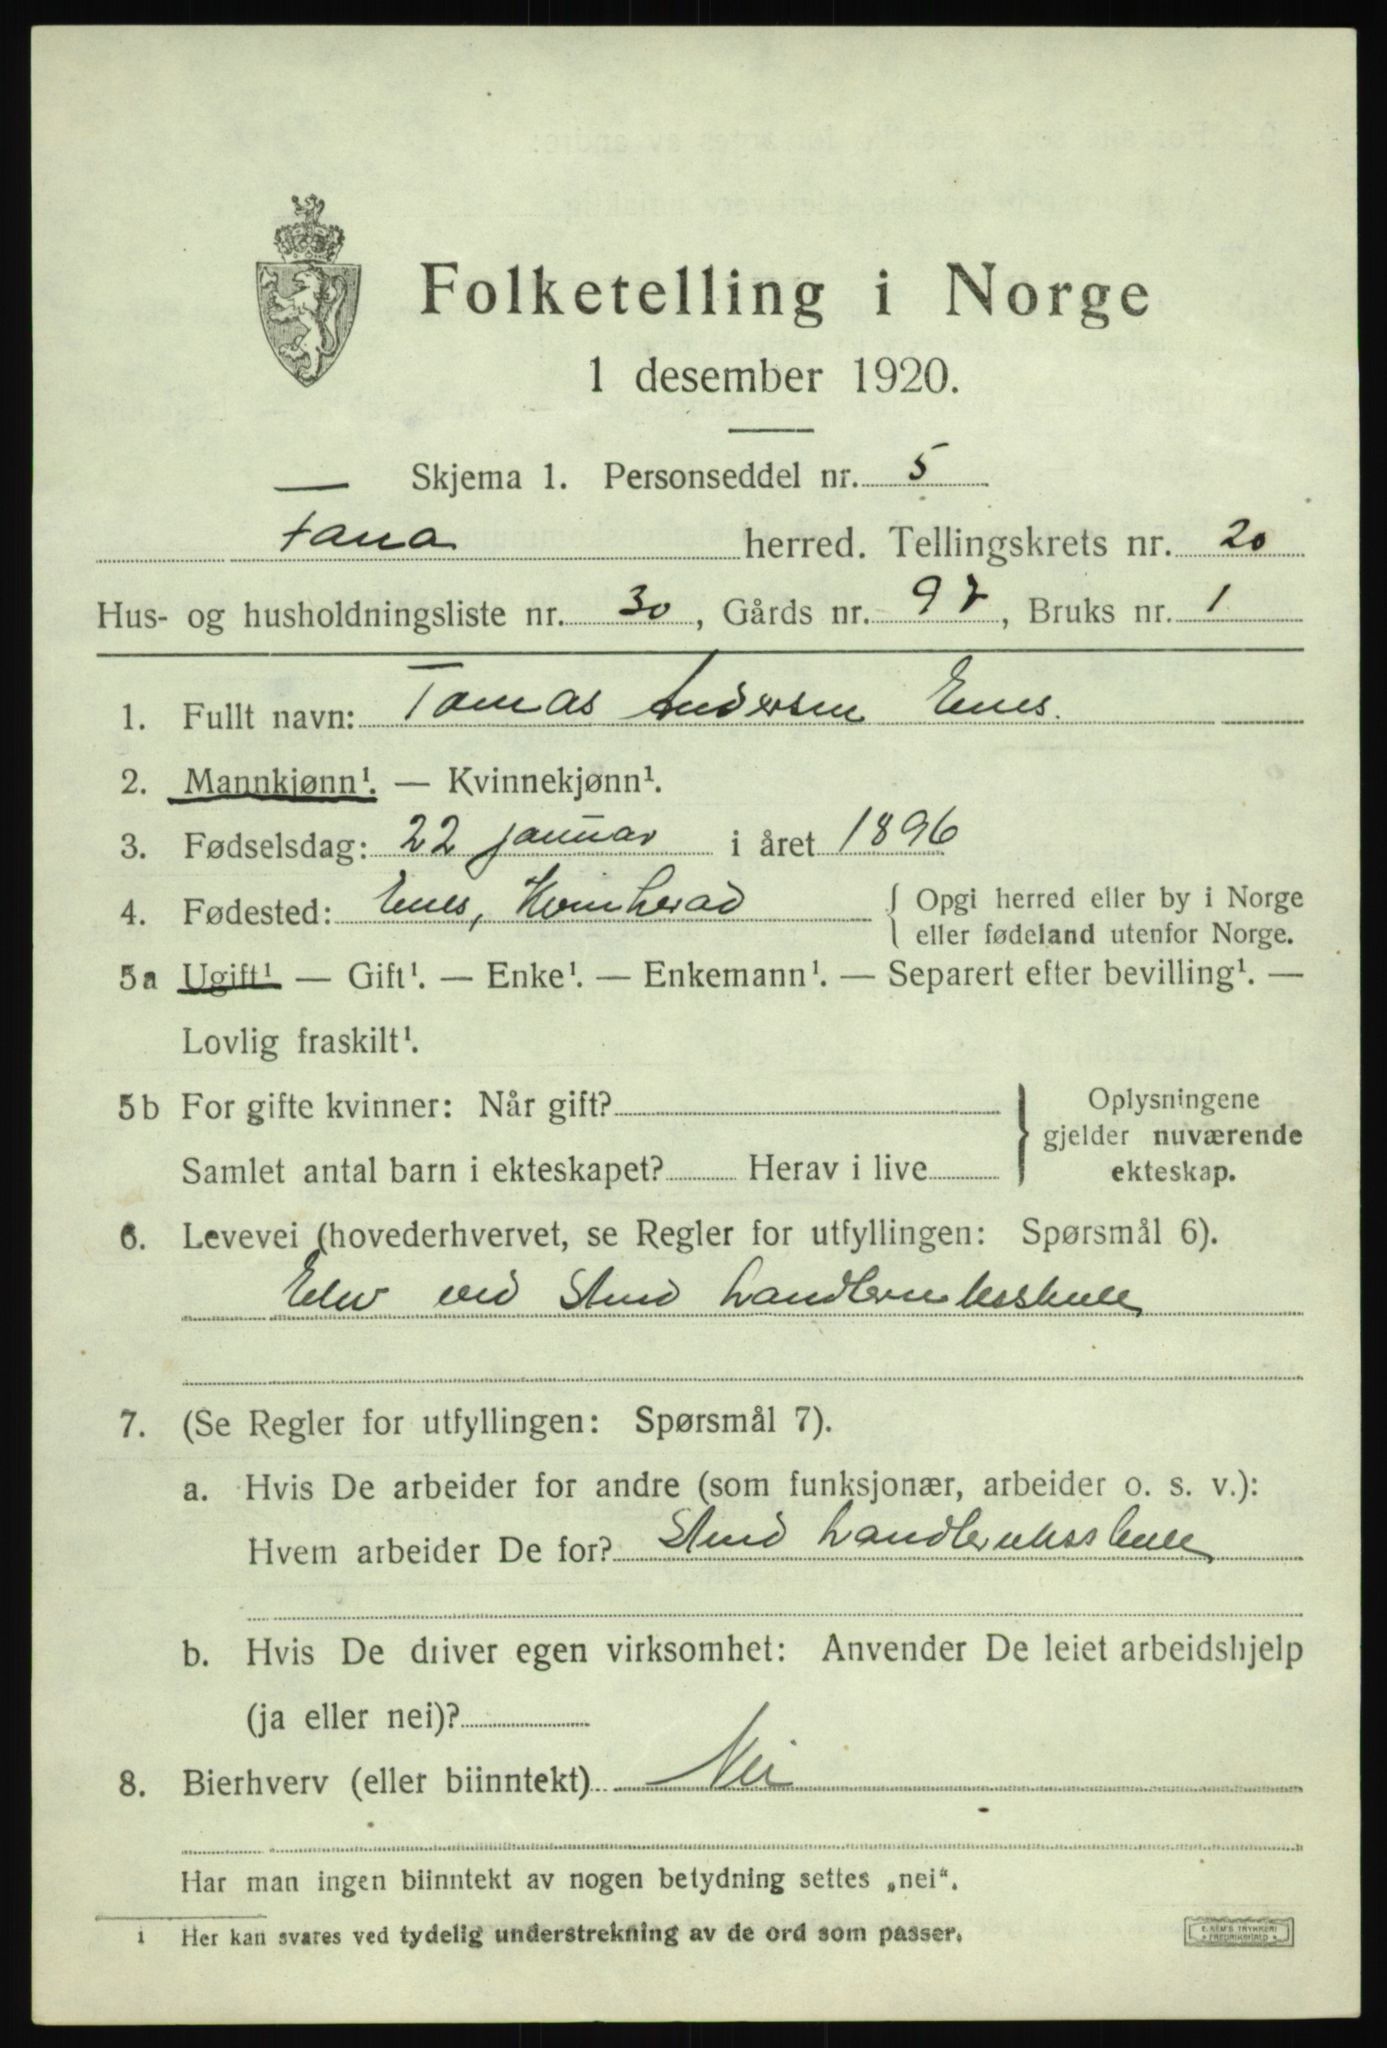 Folketelling i Norge
1 desember 1920.
Skjema 1. Personseddel nr. 5
Fana herred. Tellingskrets nr. 20
Hus- og husholdningsliste nr. 30, Gårds nr. 97, Bruks nr. 1
1. Fullt navn: Tomas Andersen Enes.
2. Mannkjønn¹. — Kvinnekjønn¹.
3. Fødselsdag: 22 januar i året 1896
4. Fødested: Enes, Kvinherad { Opgi herred eller by i Norge
eller fødeland utenfor Norge.
5a Ugift¹ — Gift¹. — Enke¹. — Enkemann¹. — Separert efter bevilling¹. —
Lovlig fraskilt¹.
5b For gifte kvinner: Når gift?
Samlet antal barn i ekteskapet? Herav i live
} Oplysningene
gjelder nuværende
ekteskap.
6. Levevei (hovederhvervet, se Regler for utfyllingen: Spørsmål 6).
Elev ved Stend Landbruksskule
7. (Se Regler for utfyllingen: Spørsmål 7).
a. Hvis De arbeider for andre (som funksjonær, arbeider o. s. v.):
Hvem arbeider De for? Stend Landbruksskule
b. Hvis De driver egen virksomhet: Anvender De leiet arbeidshjelp
(ja eller nei)?
8. Bierhverv (eller biinntekt) Nei
Har man ingen biinntekt av nogen betydning settes „nei“.
1 Her kan svares ved tydelig understrekning av de ord som passer.
E. SEM'S TRYKKERI
FREDRIKSHALD